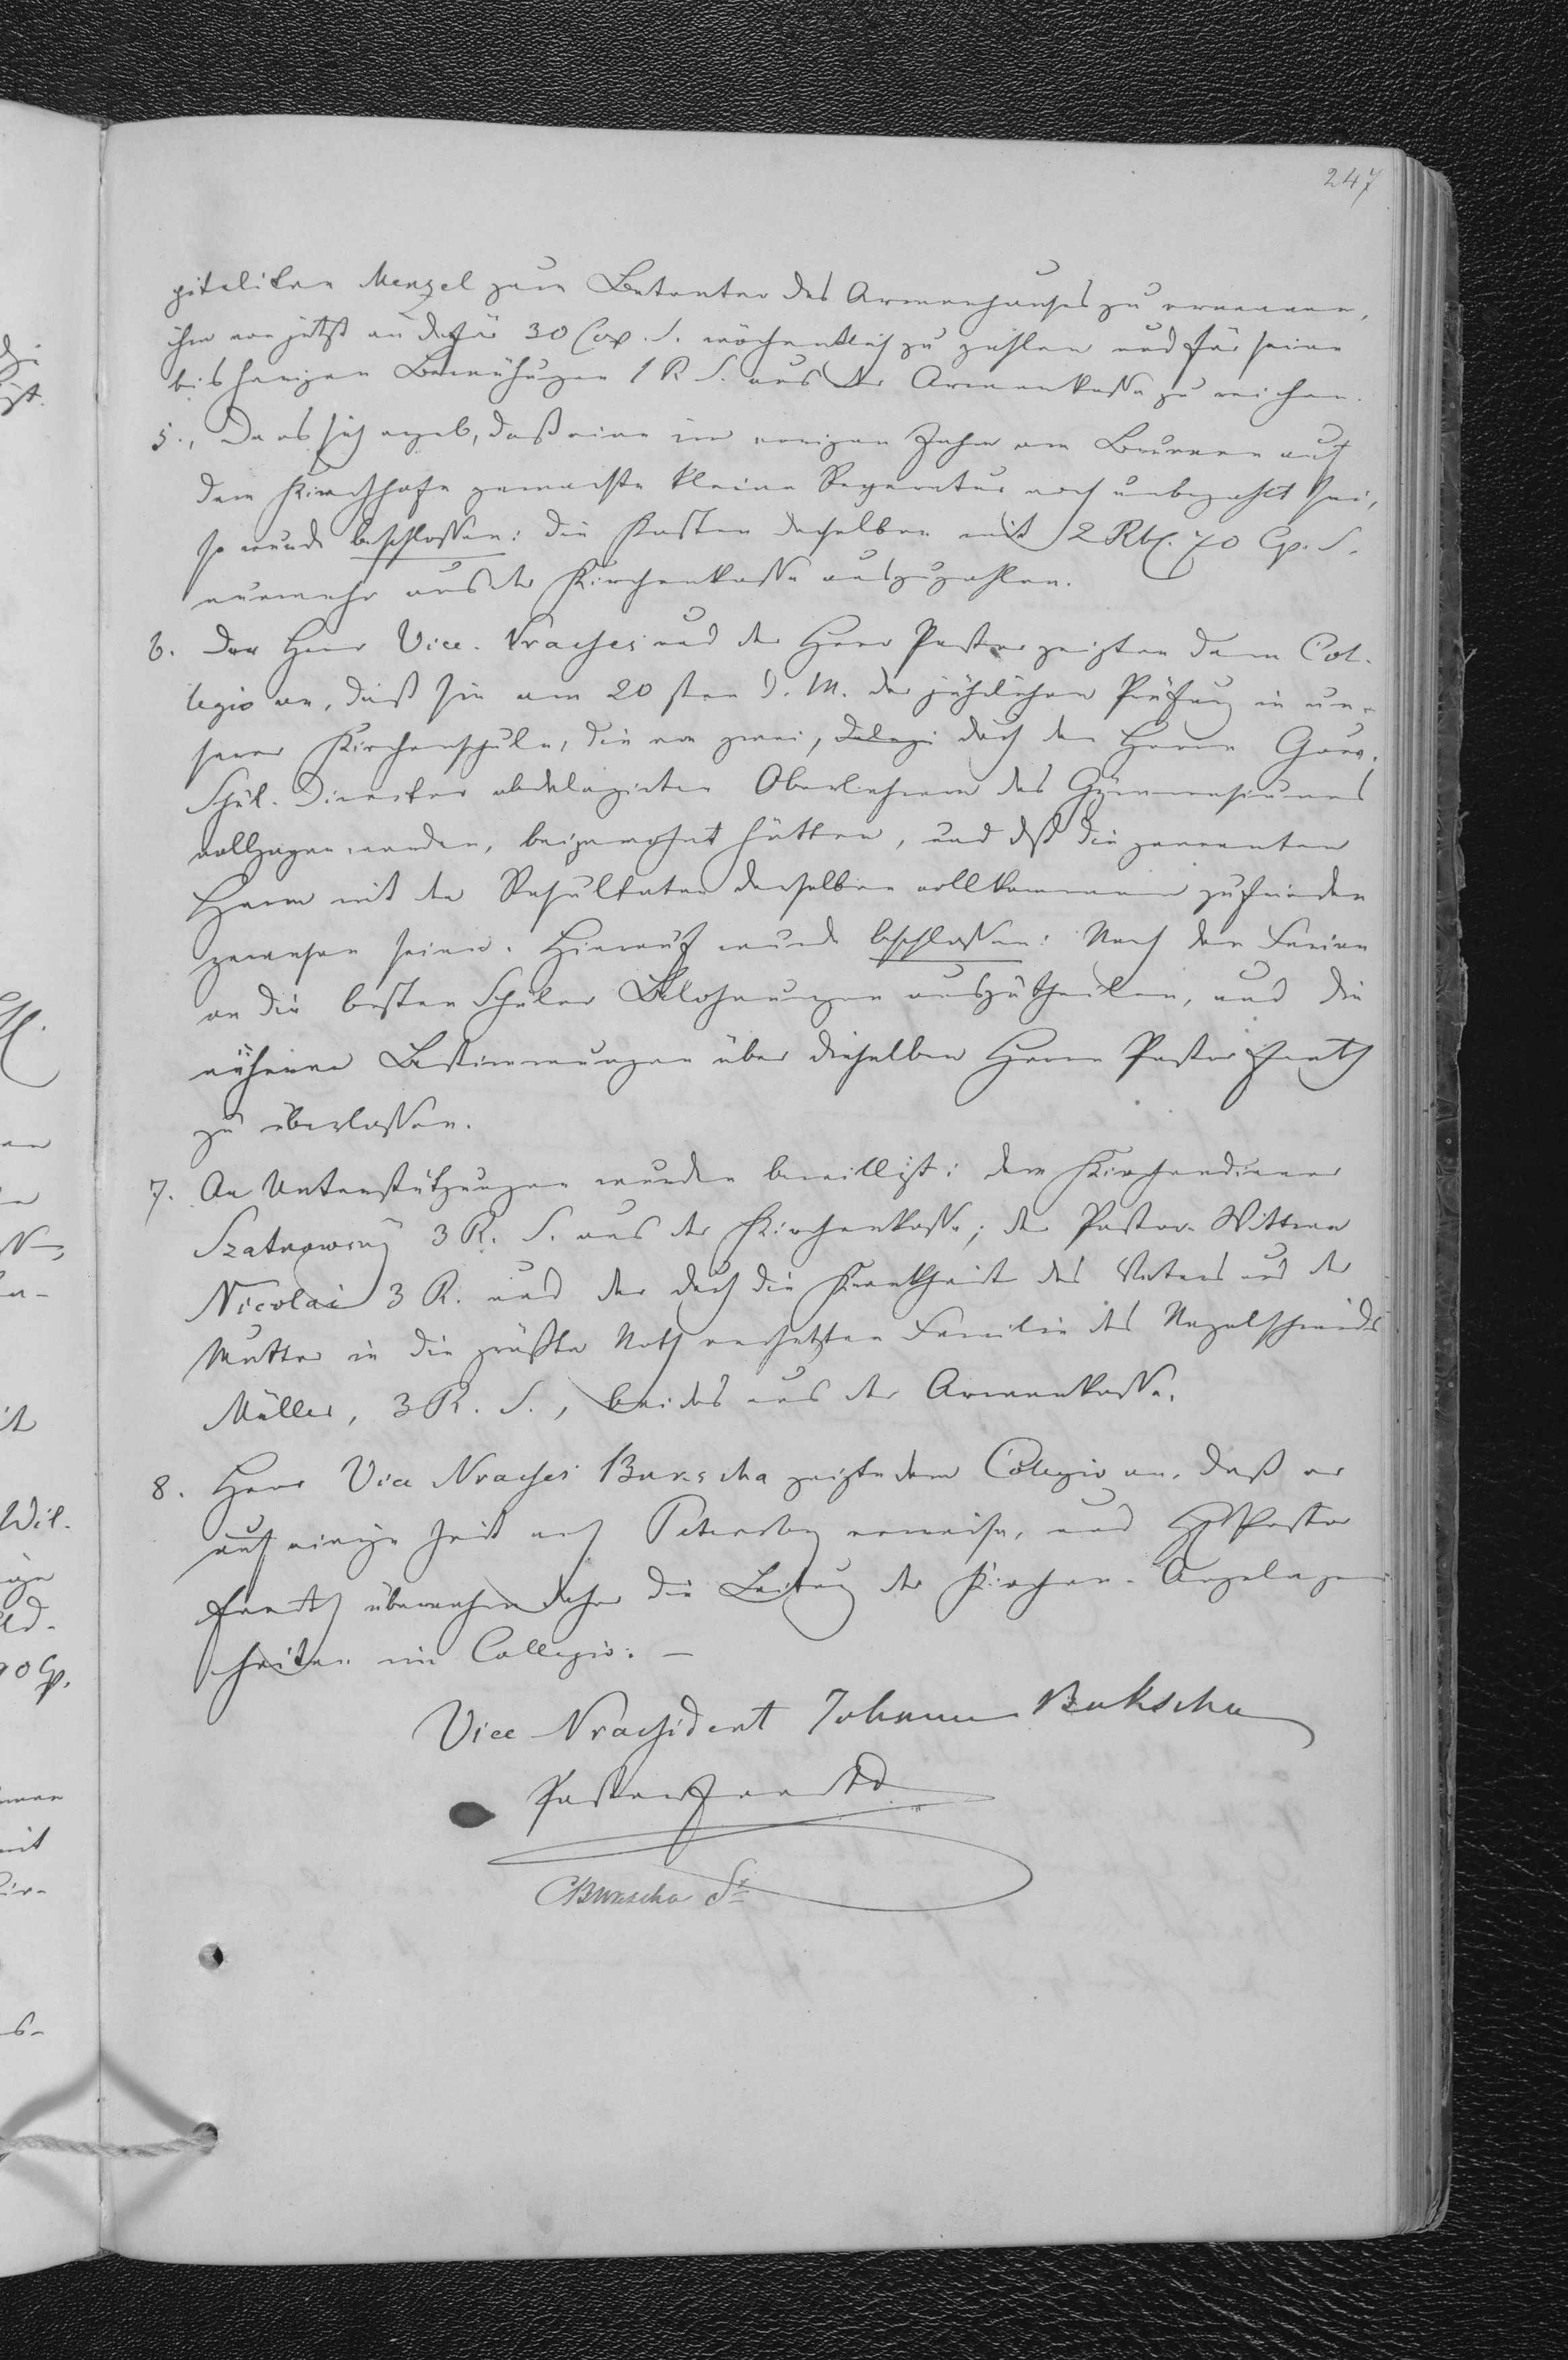 247
pitaliten Menzel zum Betvater des Armenhauses zu ernennen,
ihm von jetzt an dafür 30 Cop. S. wöchentlich zu zahlen und für seine
bisherigen Bemühungen 1 R. S. aus der Armenkasse zu reichen.
5., Da es sich ergab, daß eine im vorigen Jahre am Brunnen auf
dem Kirchhofe gemachte kleine Reperatur noch unbezahlt sei,
so wurde beschlossen: die Kosten derselben mit 2 Rbl. 70 Cp. S.
nunmehr aus der Kirchenkasse auszuzahlen.
6. Der Herr Vice-Praeses und der Herr Pastor zeigten dem Col-
legio an, daß sie am 20sten d. M. der jährlichen Prüfung in un-
serer Kirchenschule, die von zwei, delegi durch den Herrn Gouv.
Schul-Director abdelegirten Oberlehrern des Gymnasiums
vollzogen worden, beigewohnt hätten, und daß die genannten
Herrn mit den Resultaten derselben vollkommen zufrieden
gewesen seien. Hierauf wurde beschlossen: Nach den Ferien
an die besten Schüler Belohnungen auszutheilen, und die
näheren Bestimmungen über dieselben Herrn Pastor
zu überlassen.
7. An Unterstützungen wurden bewilligt: dem Kirchendiener
3 R. S. aus der Kirchenkasse; der Pastor-Wittwe
Nicolai 3 R. und der durch die Krankheit des Vaters und der
Mutter in die größte Noth versetzten Familie des Nagelschmids
Müller, 3 R. S., beides aus der Armenkasse.
8. Herr Vice Praeses Bukscha zeigte dem Colegio an, daß er
auf einige Zeit nach Petersburg verreise, und H. Pastor
übernehme daher die Leitung der Kirchen-Angelegen-
heiten im Collegio. —
Vice Praesident Johann Bukscha
Pastor